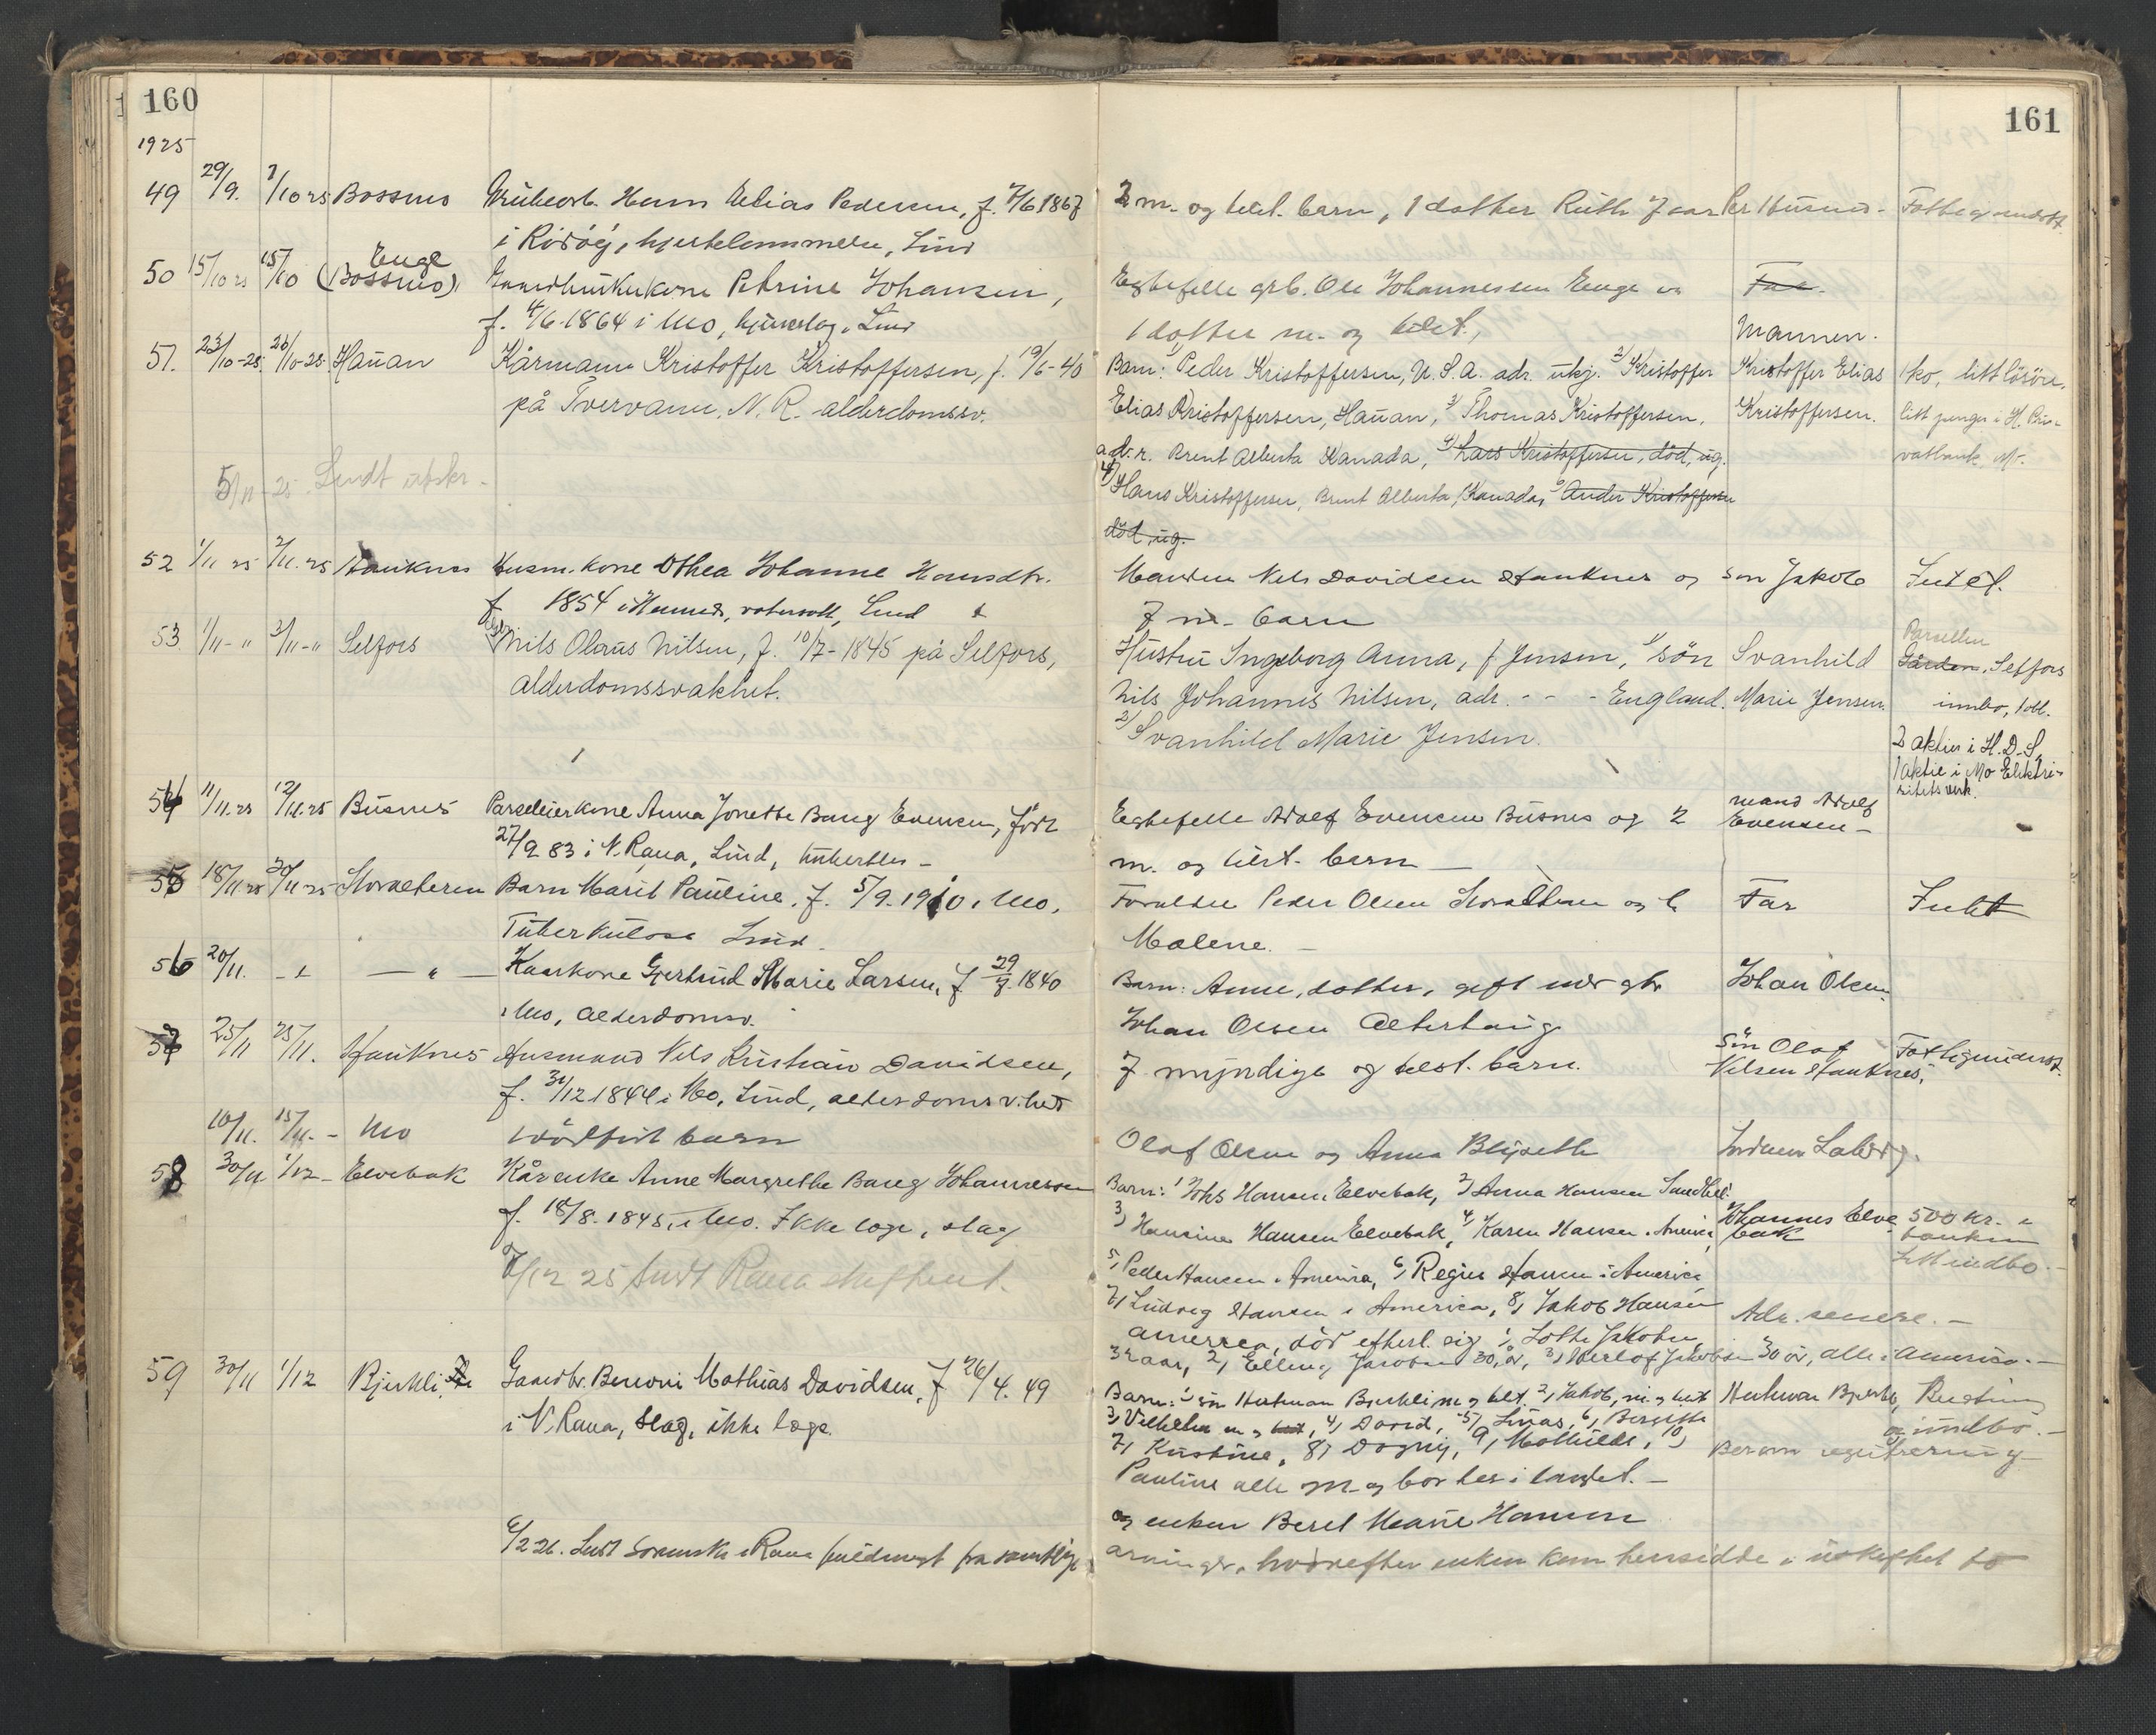 160
1925
49 29/9. 1/10 25 Bossmo Grubearb. Hans Elias Pedersen, f. 7/6 1867
i Rödöy, hjertelammelse, Lind
50 15/10 25 15/10 Enge (Bossmo) Gaardbrukerkone Petrine Johansen,
f. 4/6-1864 i Mo, hjerneslag. Lind
51. 23/10-25. 26/10-25 Hauan Kårmann Kristoffer Kristoffersen, f. 19/6-40
på Tvervann, N. R. alderdomssv.
5/11-25. Sendt utskr.
52 1/11 25 2/11.25 Hauknes Husm. kone Othea Johanne Hansdtr.
f 1854 i Hemnes, vatersott, Lind
53. 1/11-" 3/11-" Selfors Nils Olaus Nilsen, f. 10/7-1845 på Selfors,
alderdomssvakhet.
54 11/11.25 12/11.25 Busnes Parselleierkone Anna Jonette Bang Evensen, født
27/9 83 i N. Rana, Lind, tuberkles -
55 18/11.25 20/11-25 Storalteren Barn Marit Pauline, f. 5/9.1910 i Mo.
Tuberkulose Lind.
56 20/11. - " - " - Kaarkone Gjertrud Marie Larsen, f 29/7.1840
i Mo, alderdomsv.
57 25/11 25/11. Hauknes Husmand Nils Kristian Davidsen,
f. 31/12 1844 i Mo, Lind, alderdomsv.het
10/11. 15/11.- Mo 1 dødfødt barn
58 30/11 1/12- Elvebak Kårenke Anne Margrethe Bang Johannessen
f. 18/8.1845 i Mo. Ikke læge, slag
/12 25 sendt Rana skifteret.
59 30/11 1/12 Bjerkli Gaardbr. Benoni Mathias Davidsen, f 26/4. 49
i N. Rana, Slag, ikke læge.
6/2 26. Sendt Sorenskr. i Rana fuldmagt fra samtlige
161
2 m. og tilst. barn, 1 datter Ruth 7 aar
Fattigunderst.
Egtefelle grb. Ole Johannessen Enge og Far.
1 datter m. og tilst., Mannen.
Barn: 1) Peder Kristoffersen, U.S.A. adr. ukj. 2) Kristoffer Kristoffer Elias 1 ko, litt lösöre,
Elias Kristoffersen, Hauan, 3) Thomas Kristoffersen, Kristoffersen. litt penger i H. Pri-
adr. Brent Alberta Kanada, 4) Lars Kristoffersen, död, ug. vatbank, Mo.
4) Hans Kristoffersen, Brent Alberta, Kanada, 5) Ander Kristoffersen
död, ug.
Manden Nels Davidsen Hauknes og sön Jakob Intet.
7 m. barn
Hustru Ingeborg Anna, f Jensen, 1) sön Svanhild Parsellen Gården, Selfors
Nils Johannes Nilsen, adr. - - - England. Marie Jensen. innbo, 1 obl.
2) Svanhild Marie Jensen. 2 aktier i H. D. S,
1 aktie i Mo Elektri-
sitetsverk.
Egtefelle Adolf Evensen Busnes og 2 mand Adolf
m. og tilst. barn Evensen -
Foreldre Peder Olsen Storalteren og h. Far Intet
Malene. -
Barn: Anne, datter, gift med gbr Johan Olsen
Johan Olsen Alterhaug
7 myndige og tilst. barn. Sön Olaf Fattigunderst.
Nilsen Hauknes,
Olaf Olsen og Anna Blyseth
Barn: 1) Johs Hansen Elvebak, 2) Anna Hansen
3) Hansine Hansen Elvebak, 4) Karen Hansen i America, Johannes Elve- bak 500 kr. i banken
5) Peder Hansen i America, 6) Regine Hansen i America Litt indbo.-
7) Ludvig Hansen i America, 8) Jakob Hansen Adr. senere. -
america, död efterl. sig 1) Lotte Jakobsen
32 aar, 2) Elling Jacobsen 30 år, 3) Jakobsen 30 år, alle i America. -
Barn: 1) sön Herman Bjerkli m. og tilst. 2) Jakob, m. og tilst Herman Bjerkli, Besetning
3) Vilhelm m. og tilst, 4) David, 5) Linas, 6) Bergitte og indbo. -
7) Kristine, 8) Dagny, 9) Mathilde, 10) Beram registrering
Pauline alle m. og bor her i landet. -
og enken Beret Marie Hansen
arvinger, hvorefter enken kan hensidde i uskiftet bo